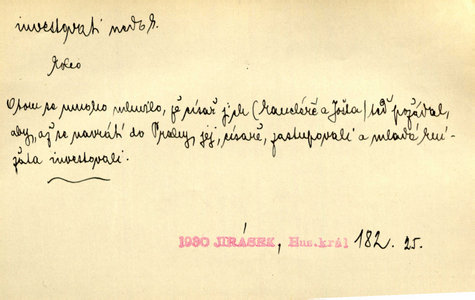 investovati nedok.
koho
O tom se mnoho mluvilo, že písař jich (kancléře a Jošta) též požádal,
aby, až se navrátí do Prahy, jej, písaře, zastupovali a mladá kní-
žata investovali.
1930 JIRÁSEK, Hus. král 182. 25.